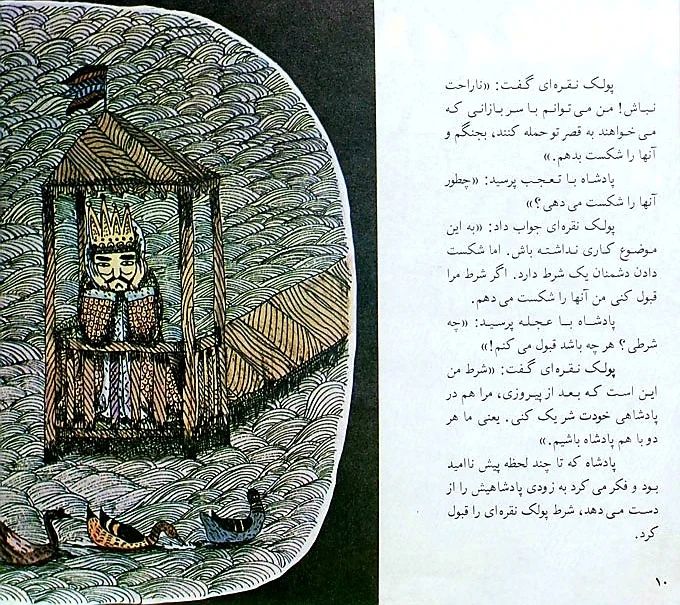 پولک نقره‌ای گفت: «ناراحت
نباش! من می‌توانم با سربازانی که
می‌خواهند به قصر تو حمله کنند، بجنگم و
آنها را شکست بدهم.»
پادشاه با تعجب پرسید: «چطور
آنها را شکست می‌دهی؟»
پولک نقره‌ای جواب داد: «به این
موضوع کاری نداشته باش. اما شکست
دادن دشمنان یک شرط دارد. اگر شرط مرا
قبول کنی من آنها را شکست می‌دهم.
پادشاه با عجله پرسید: «چه
شرطی؟ هر چه باشد قبول می‌کنم!»
پولک نقره‌ای گفت: «شرط من
این است که بعد از پیروزی، مرا هم در
پادشاهی خودت شریک کنی. یعنی ما هر
دو با هم پادشاه باشیم.»
پادشاه که تا چند لحظه پیش ناامید
بود و فکر می‌کرد به زودی پادشاهیش را از
دست می‌دهد، شرط پولک نقره‌ای را قبول
کرد.
۱۰